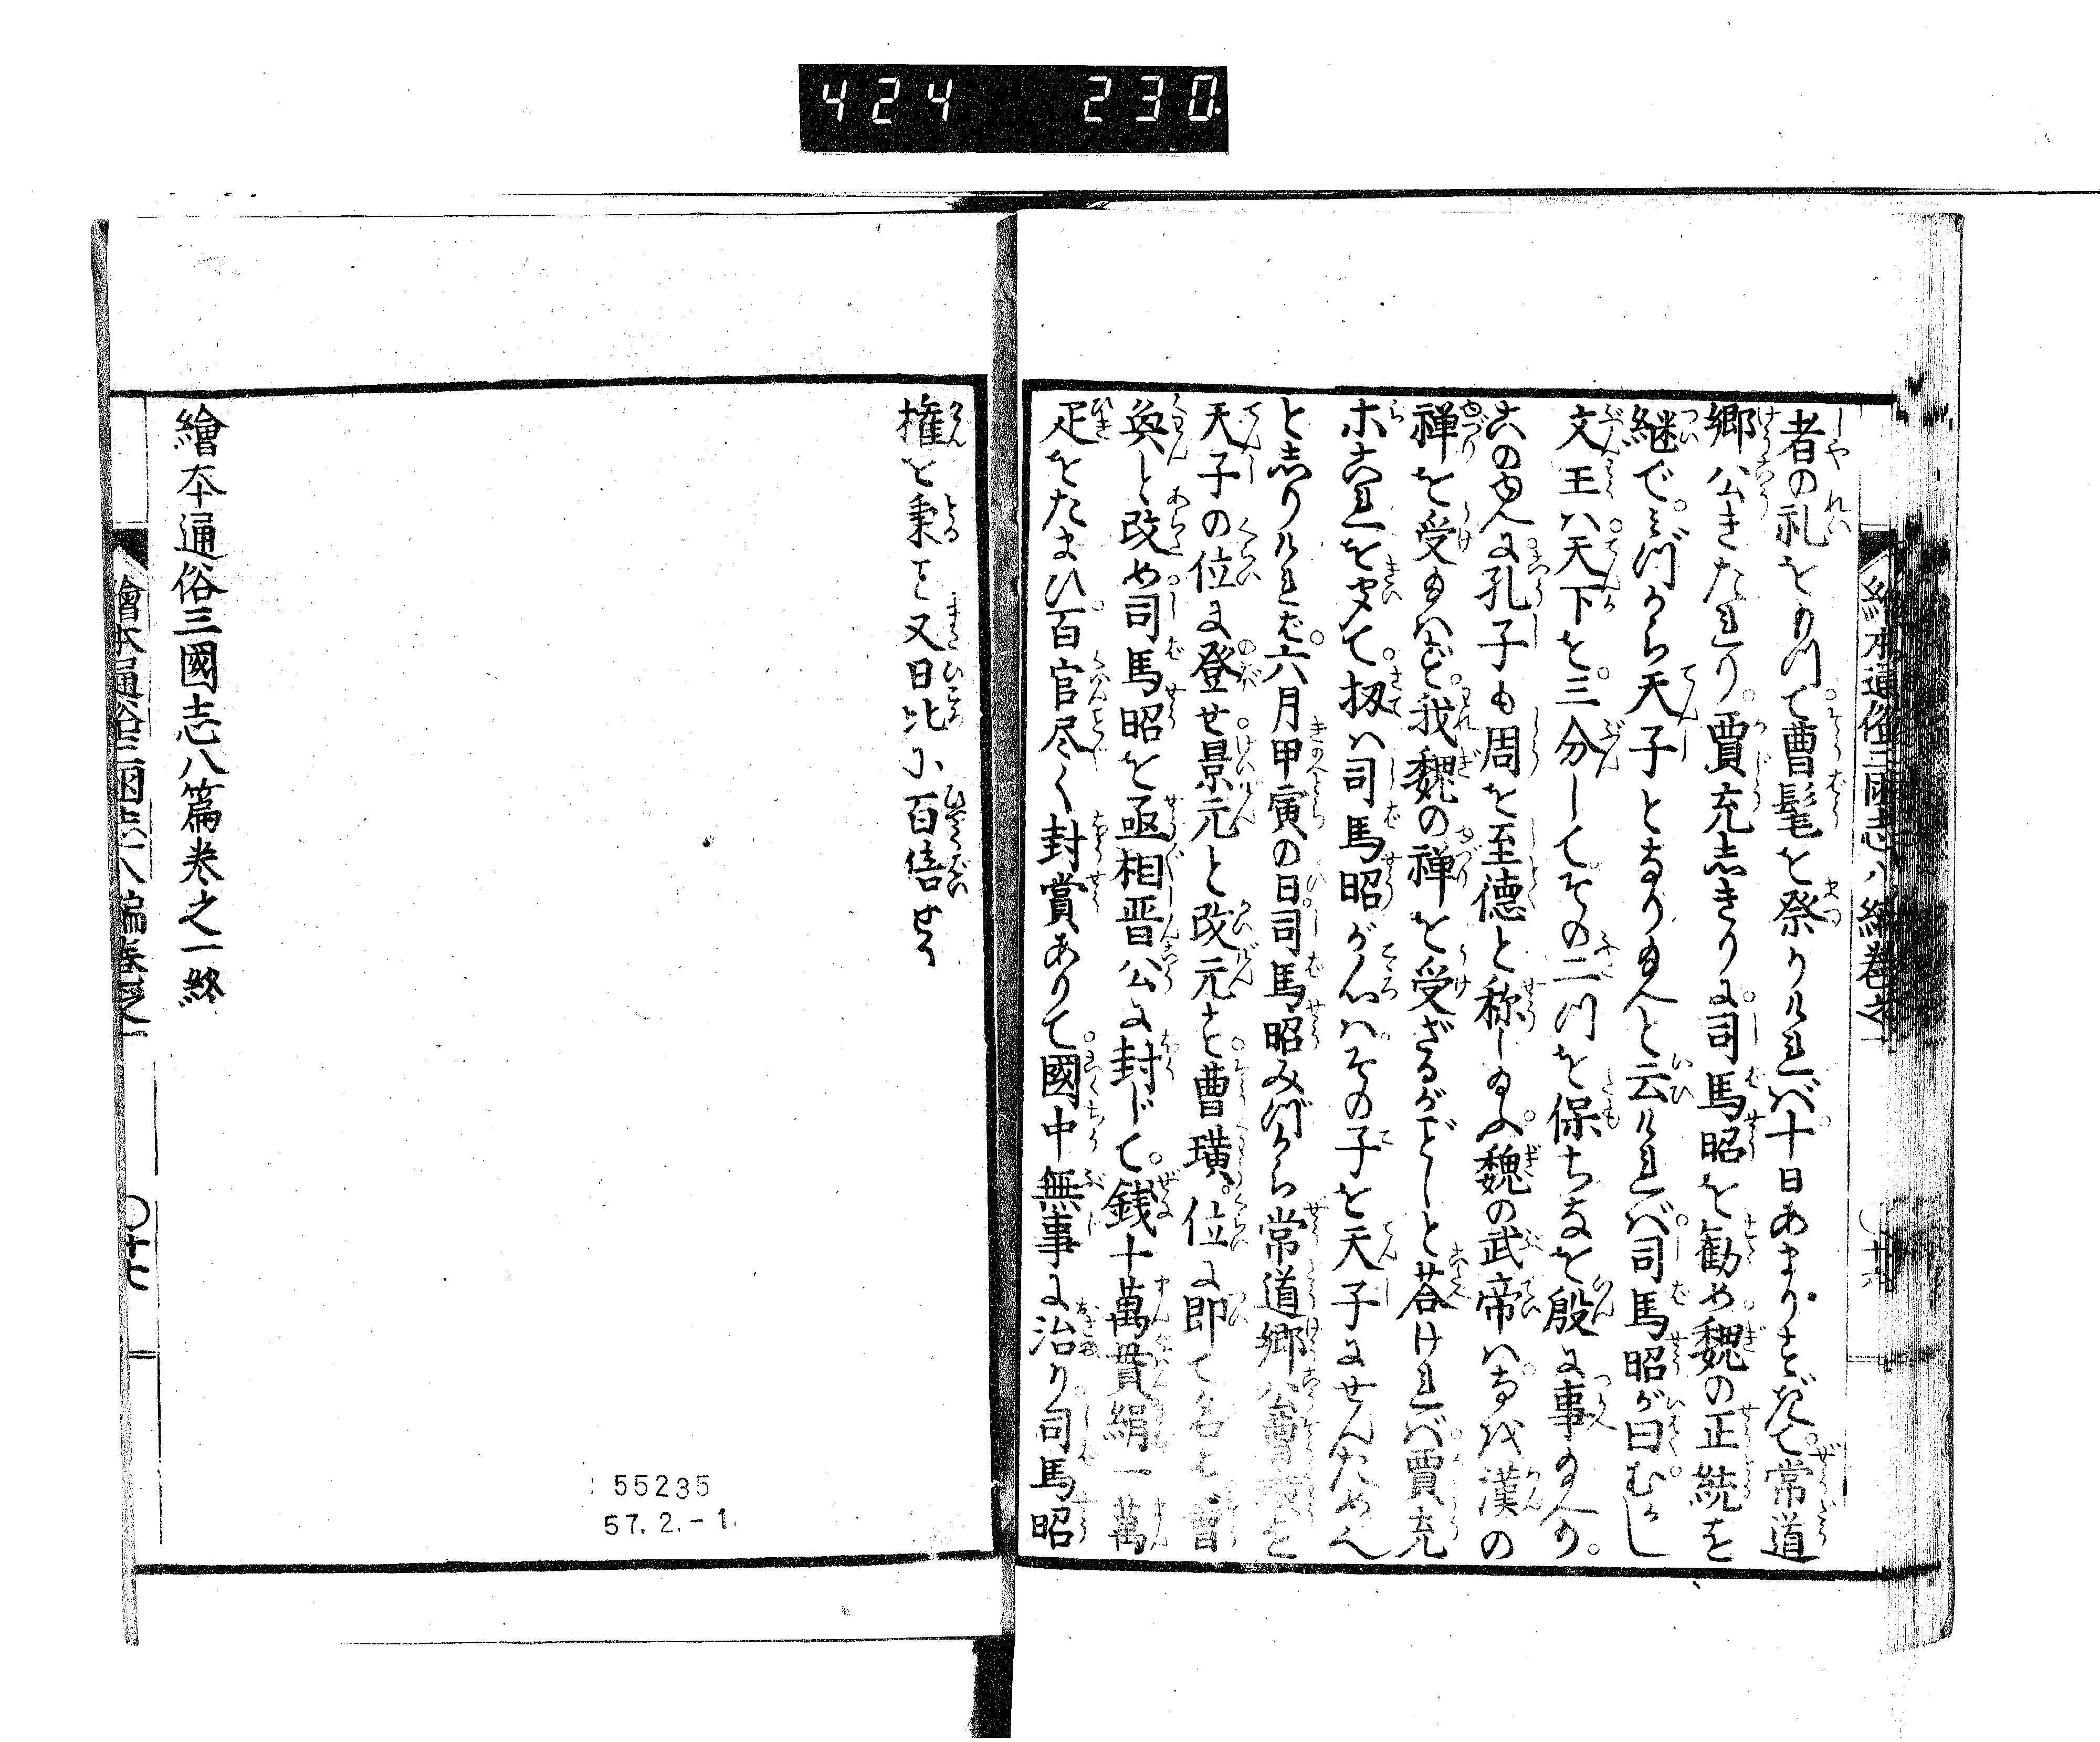 424 230.
繪本通俗三國志八編巻之一
者の礼をもつて。曹髦を祭りければ。十日あまりさだめて常道
郷公きたれり。賈充しきりに。司馬昭を勧め。魏の正統を
継で。みづから天子となり給へと云ければ。司馬昭が曰。むかし
文王は。天下を。三分して。その二つを保ちなを殷に事給へり。
この故に。孔子も周を至徳と称し給ふ。魏の武帝は。なを漢の
禅を受給はず。我魏の禅を受ざるがごとしと荅ければ。賈充
等これを聞て。扨は司馬昭が心は。その子を天子にせんためへ
としりければ。六月甲寅の日。司馬昭みづから常道郷公曹璜を
天子の位に登せ。景元と改元す。曹璜。位に即て名を曹
奐と改め。司馬昭を丞相晋公に封じて。銭十萬貫絹一萬
疋をたまひ。百官尽く封賞ありて。國中無事に治り。司馬昭
権を秉こと又日比に百倍せり
繪本通俗三國志八篇巻之一終
繪本通俗三國志八編巻之一
〇十七
55235
57.2.-1.